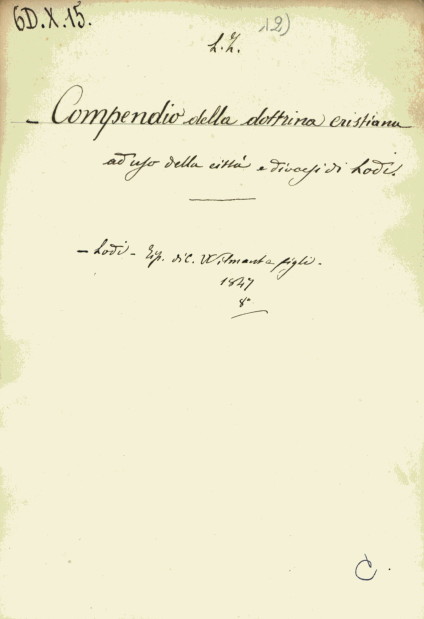 6D.X.15.
12)
L.Z.
- Compendio della dottrina cristiana
ad uso della città e diocesi di Lodi.
- Lodi - Tip. di C. Wilmant e figli -
1847
8°
C.